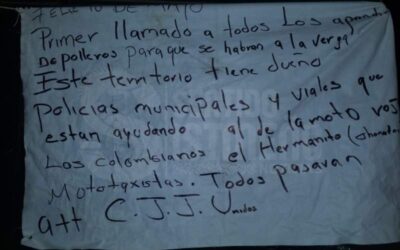 Feliz 10 DE MAYO
Primer llamado a todos Los
De polleros para que se habran a la verga
Este territorio tiene dueño
policias municipales y viales que
estan ayudando al de la moto roj
Los colombianos el Hermanito (
Mototaxistas. Todos pasaran
att C.J.J. Unidos